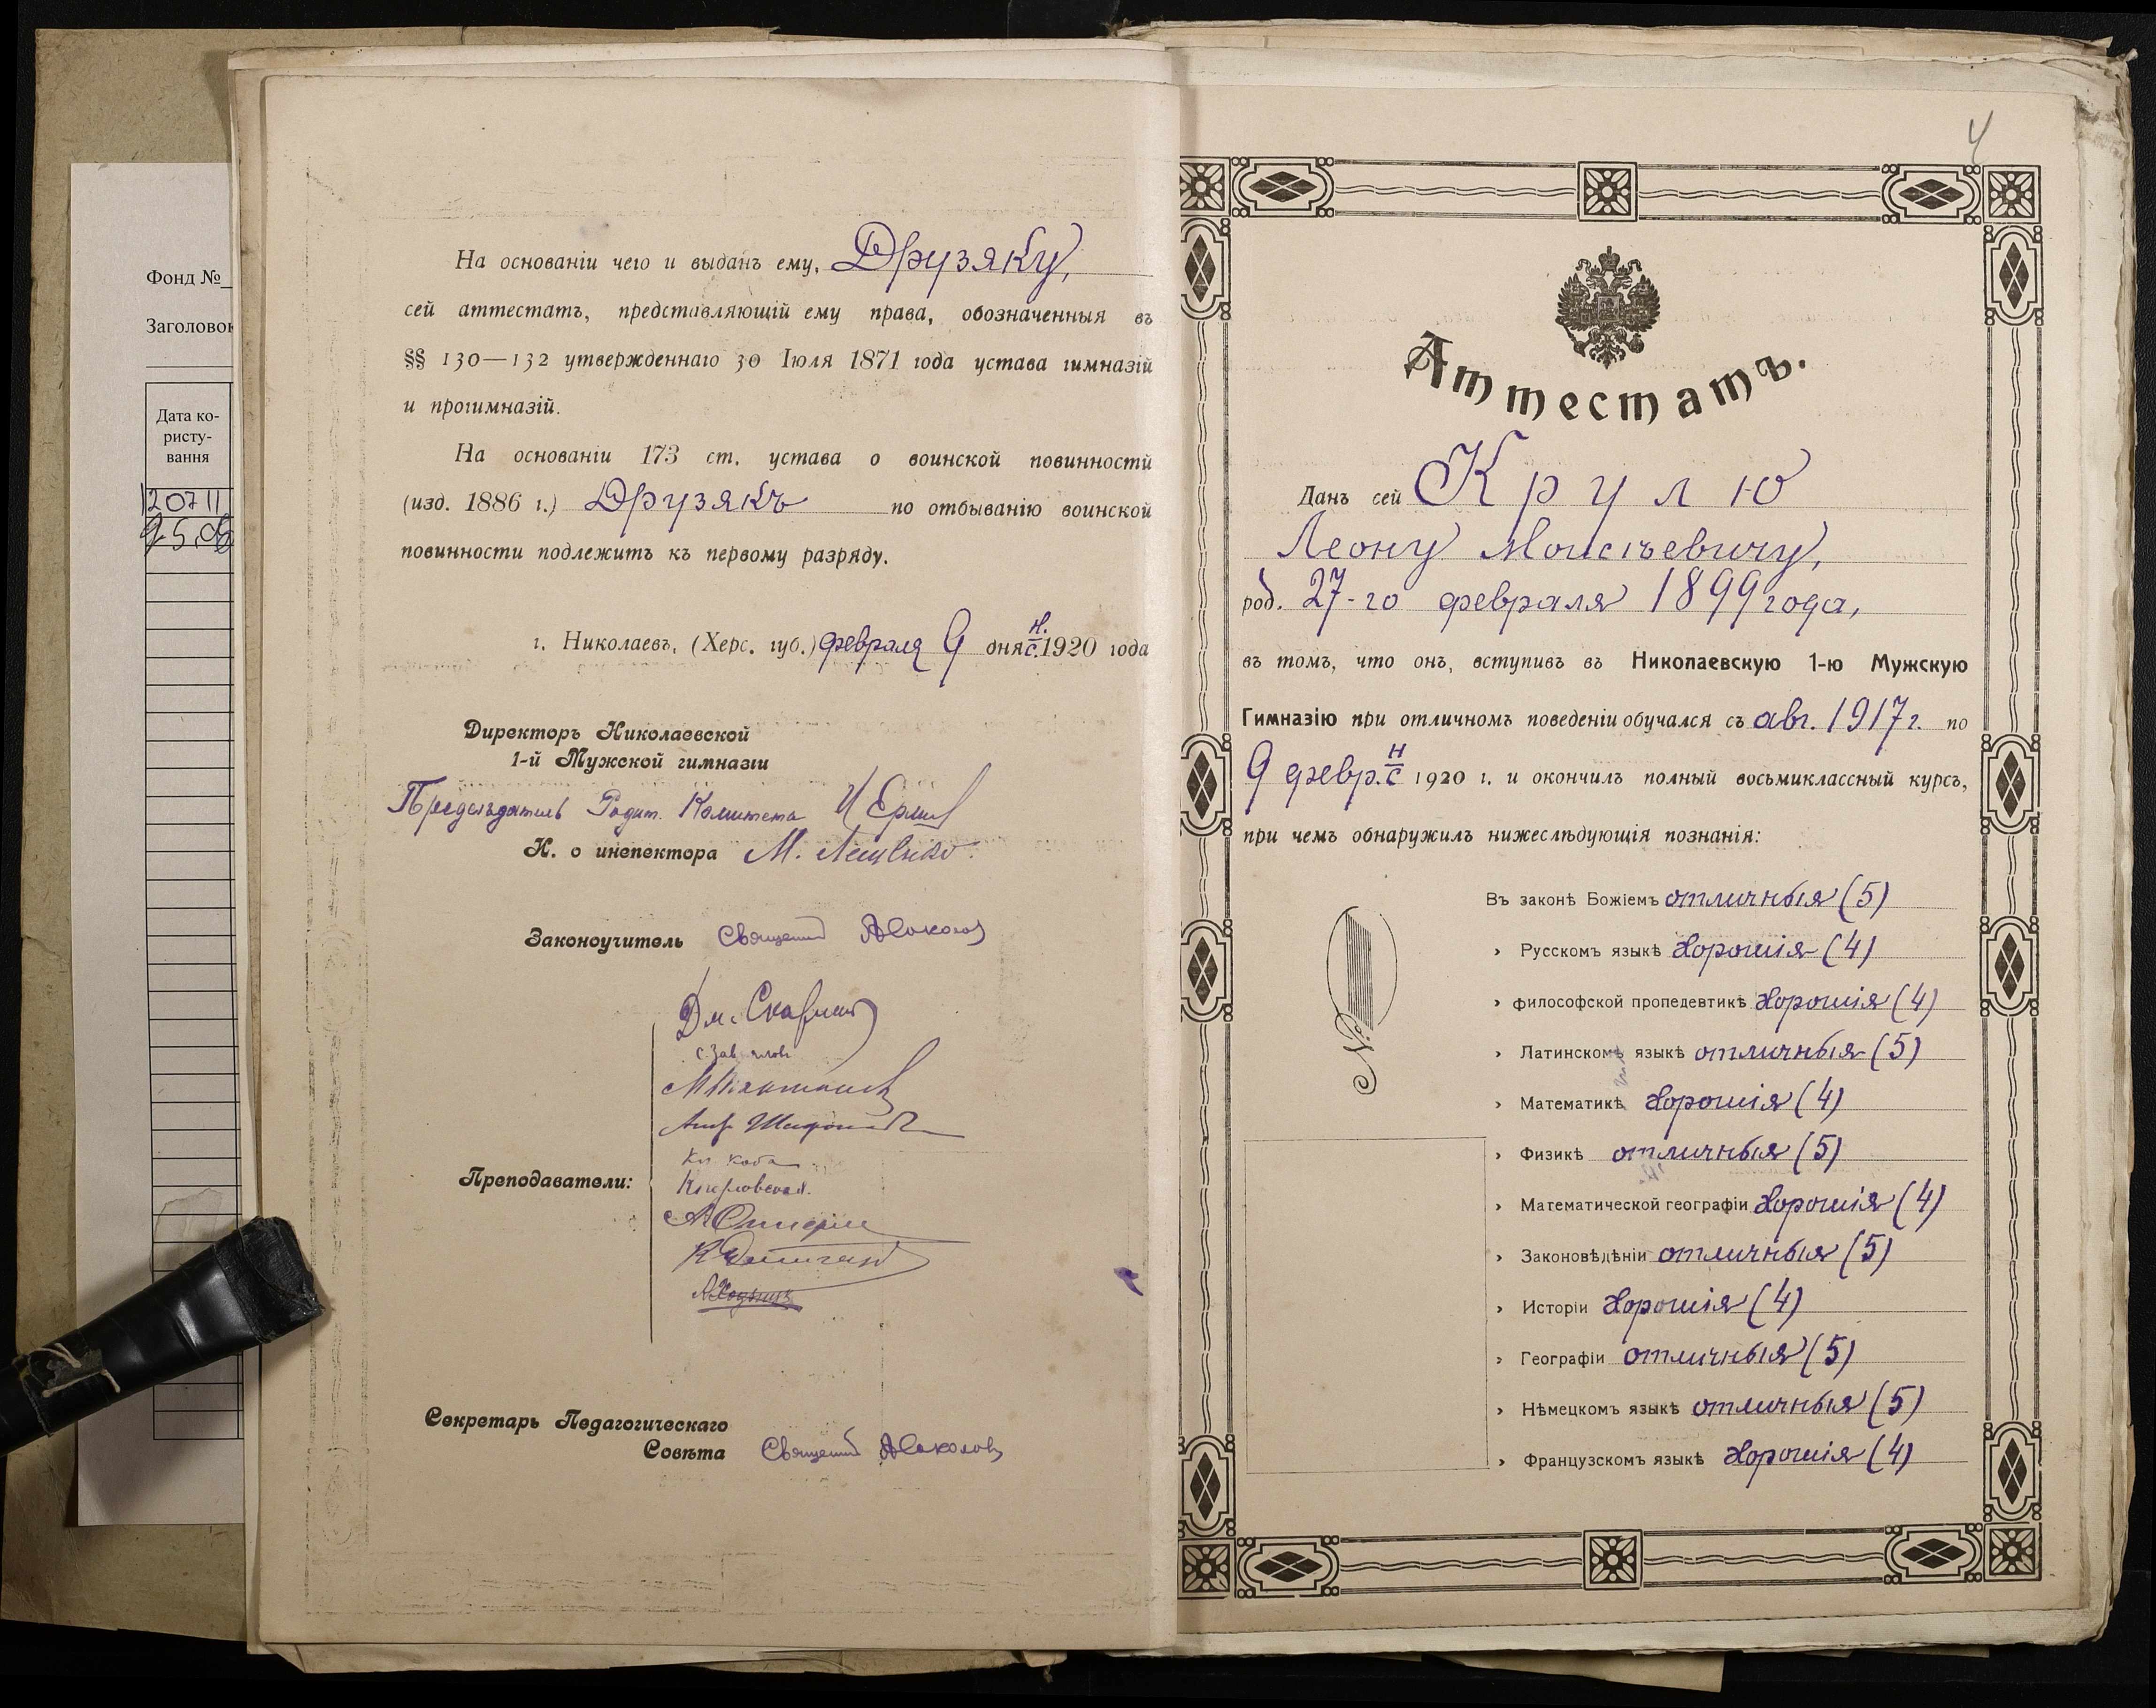 Фонд №
Заголовок
Дата ко-
ристу-
вання
20711
На основаніи чего и выданъ ему, Друзяку,
сей аттестатъ, представляющій ему права, обозначенныя въ
§§ 130—132 утвержденнаго 30 Іюля 1871 года устава гимназій
и прогимназій.
На основаніи 173 ст. устава о воинской повинности
(изд. 1886 г.) Друзякъ по отбыванію воинской
повинности подлежитъ къ первому разряду.
г. Николаевъ, (Херс. губ.) февраля 9 дня н./с. 1920 года
Директоръ Николаевской
1-й Мужской гимназіи
Председатель Родит. Комитета
И. о инспектора М.
Законоучитель Священник
Дм.
Преподаватели:
Секретарь Педагогическаго
Совѣта Священник
4
Аттестатъ.
Данъ сей Крулю
Леону Моисѣевичу,
род. 27-го февраля 1899 года,
въ томъ, что онъ, вступивъ въ Николаевскую 1-ю Мужскую
Гимназію при отличномъ поведеніи обучался съ авг. 1917 г. по
9 февр. н/с 1920 г. и окончилъ полный восьмиклассный курсъ,
при чемъ обнаружилъ нижеслѣдующія познанія:
№
Въ законѣ Божіемъ отличныя (5)
» Русскомъ языкѣ хорошія (4)
» философской пропедевтикѣ хорошія (4)
» Латинскомъ языкѣ отличныя (5)
» Математикѣ хорошія (4)
» Физикѣ отличныя (5)
» Математической географіи хорошія (4)
» Законовѣдѣніи отличныя (5)
» Исторіи хорошія (4)
» Географіи отличныя (5)
» Нѣмецкомъ языкѣ отличныя (5)
» Французскомъ языкѣ хорошія (4)